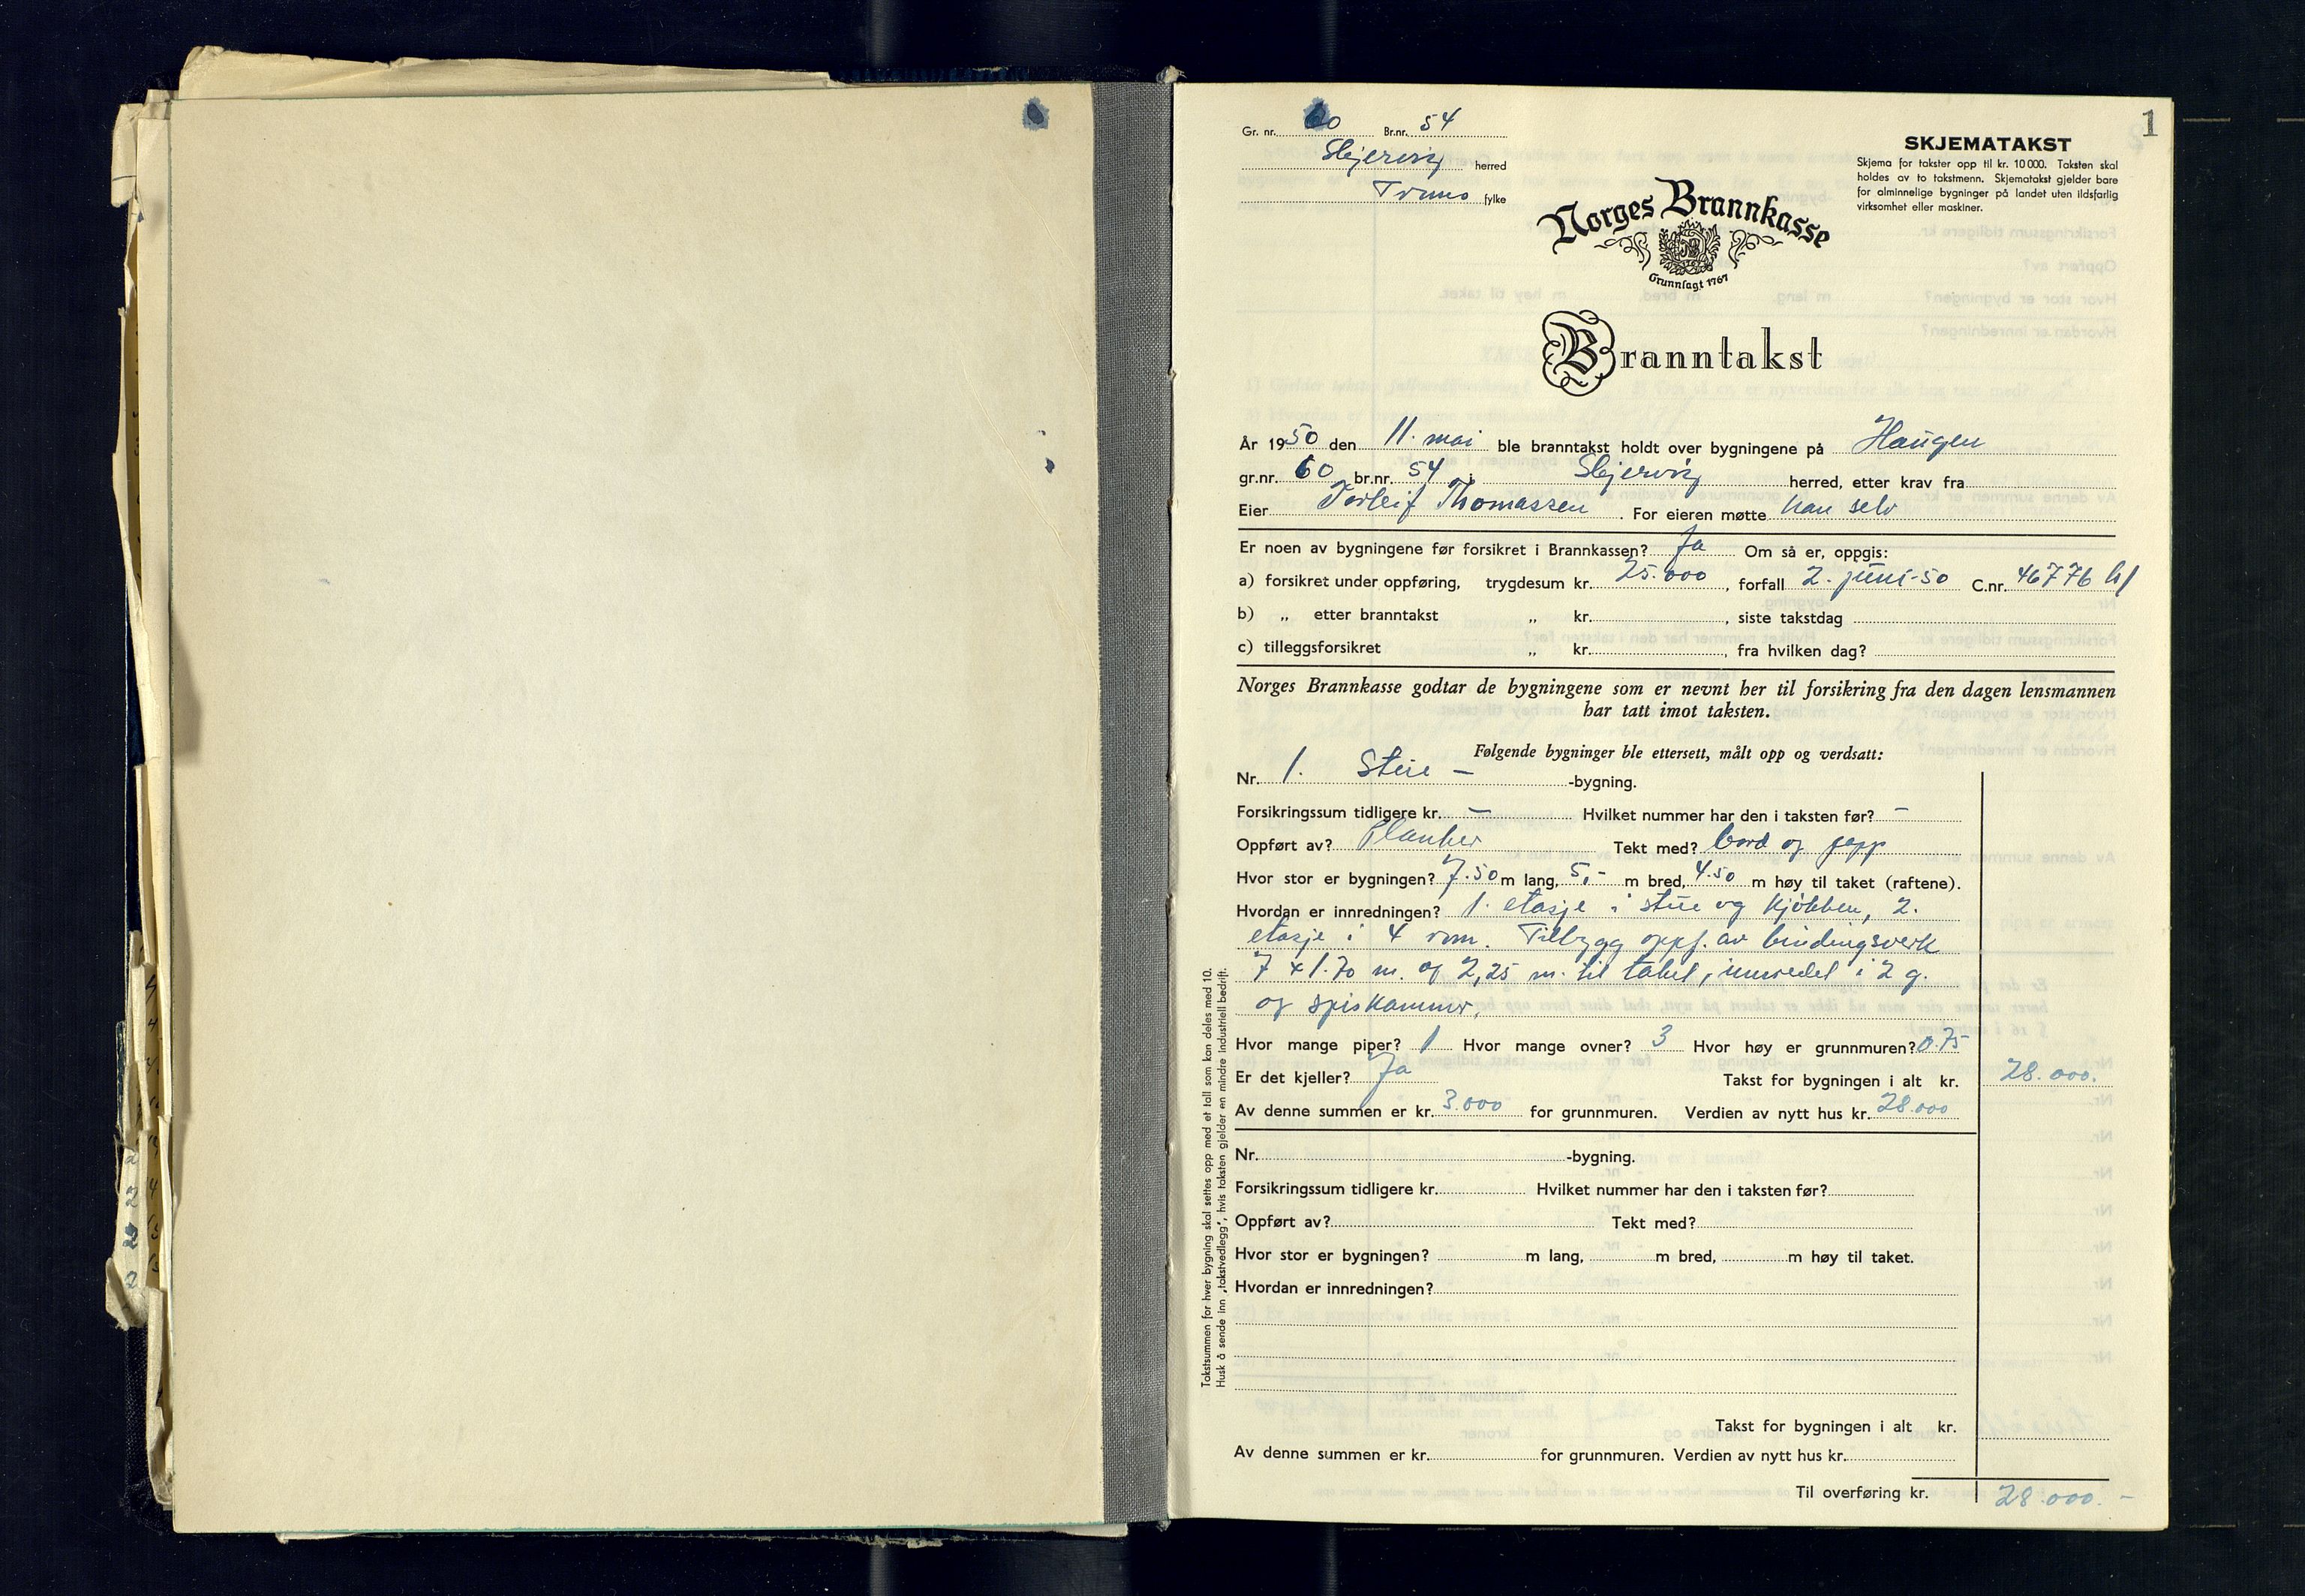 1
Gr. nr. 60 Br.nr. 54
Skjervöy herred
Troms fylke
SKJEMATAKST
Skjema for takster opp til kr. 10 000. Taksten skal
holdes av to takstmenn. Skjematakst gjelder bare
for alminnelige bygninger på landet uten ildsfarlig
virksomhet eller maskiner.
Norges Brannkasse
Grunnlagt 1767
Branntakst
År 1950 den 11. mai ble branntakst holdt over bygningene på Haugen
gr.nr. 60 br.nr. 54 i Skjervöy herred, etter krav fra
Eier Torleif Thomassen . For eieren møtte han selv
Er noen av bygningene før forsikret i Brannkassen? Ja Om så er, oppgis:
a) forsikret under oppføring, trygdesum kr. 25.000, forfall 2. juni-50 C.nr. 46776
b) „ etter branntakst „ kr. , siste takstdag
c) tilleggsforsikret „ kr. , fra hvilken dag?
Norges Brannkasse godtar de bygningene som er nevnt her til forsikring fra den dagen lensmannen
har tatt imot taksten.
Følgende bygninger ble ettersett, målt opp og verdsatt:
Nr. 1. Stue – -bygning.
Forsikringssum tidligere kr. – Hvilket nummer har den i taksten før? –
Oppført av? Planker Tekt med? bord og papp
Hvor stor er bygningen? 7.50 m lang, 5,- m bred, 4.50 m høy til taket (raftene).
Hvordan er innredningen? 1. etasje i stue og kjökken, 2.
etasje i 4 rom. Tilbygg oppf. av bindingsverk
7 x 1.70 m. og 2,25 m. til taket, innredet i 2 g.
og spiskammer.
Hvor mange piper? 1 Hvor mange ovner? 3 Hvor høy er grunnmuren? 0.75
Er det kjeller? Ja Takst for bygningen i alt kr. 28.000.
Av denne summen er kr. 3.000 for grunnmuren. Verdien av nytt hus kr. 28.000
Nr. -bygning.
Forsikringssum tidligere kr. Hvilket nummer har den i taksten før?
Oppført av? Tekt med?
Hvor stor er bygningen? m lang, m bred, m høy til taket.
Hvordan er innredningen?
Takst for bygningen i alt kr.
Av denne summen er kr. for grunnmuren. Verdien av nytt hus kr.
Til overføring kr. 28.000.-
Takstsummen for hver bygning skal settes opp med et tall som kan deles med 10.
Husk å sende inn „takstvedlegg", hvis taksten gjelder en mindre industriell bedrift.